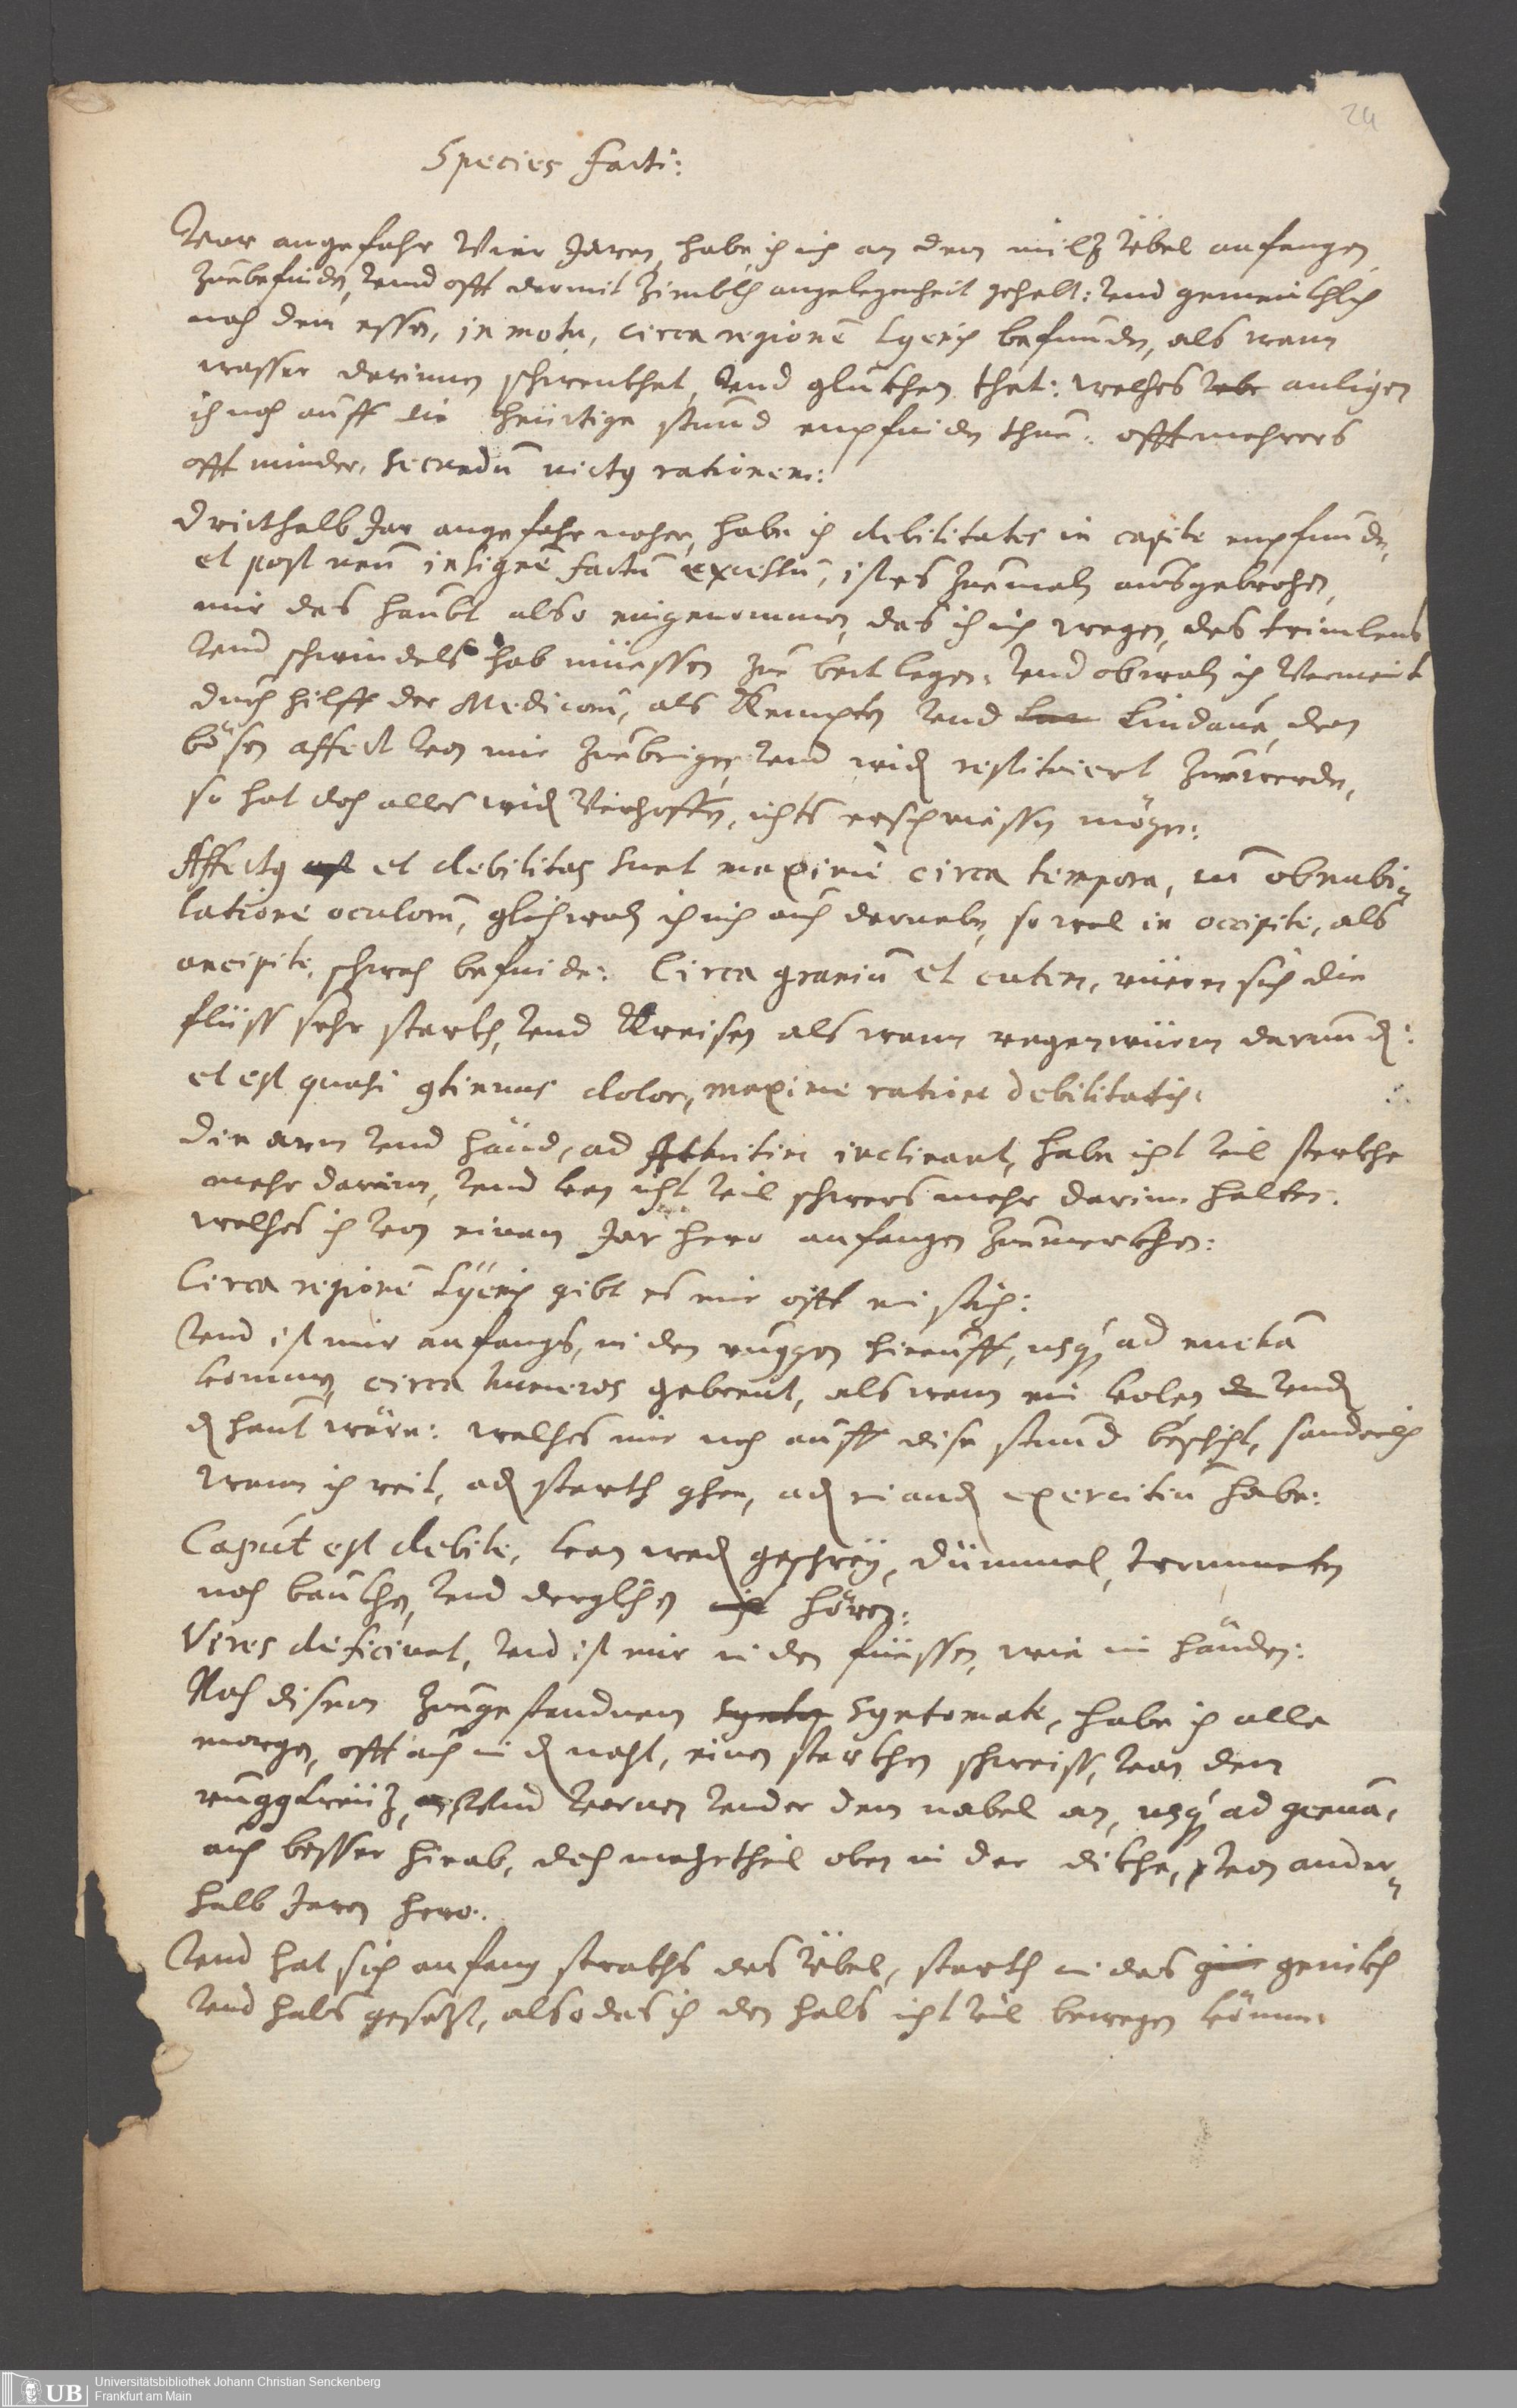 24
Species facti:
Vor angefahr Vier Jaren, habe ich mich an dem miltz Übel anfangen
zuebefinden, vnnd offt darmit zimblich angelegenheit gehabt: vnd gemeinckhlich
nach dem essen, in motu, circa regionē Lyenis befunden, als wann
wasser darinnen schwenckhet, vnd gluckhen thet: welches anligen
ich noch auff die heüttige stund empfinden thue: offt mehrers
offt minder, secundū victus rationem:
Dritthalb Jar angefahr naher, habe ich debilitates in capite empfunden,
et post unū insignē factū excessū, ist es zuemaln aussgebrochen,
mir das haubt also eingenommen, das ich mich wegen, des trimlens
vnd schwindels hab müessen zue bett legen: vnd obwoln ich Vermeint
durch hilff der Medicorū, als Kempten vnd Lindaue, den
bösen affect von mir zuebringen, vnd wider restituiert zuewerden,
so hat doch alles wider Verhoffen, nichts erschiessen mögen:
Affectus et debilitas sunt maxime circa tempora, cū obnubi-
latione oculorū, gleichwoln ich mich auch darneben, so wol in occipite, als
ancipite, schwach befinde: Circa graniū et cutem, rüern sich die
flüss sehr starckh, vnd Kreisen als wann regenwürm darunder:
et est quasi continuus dolor, maxime ratione debilitatis:
Die arm vnd händ, ad inclinant, habe nicht vil sterckhe
mehr darinn, vnd kan nicht vil schwers mehr darinn halten.
welches ich von einem Jar hero anfangen zuemerckhen:
Circa regionē Lyenis gibt es mir offt ein stich:
vnd ist mir anfangs, in den ruggen hinauff, usq ad nucham
kommen, circa humeros gebrent, als wann ein kolen under
der haut wäre: welches mir noch auff dise stund beschicht, sonderlich
wann ich reit, oder starckh gehe, oder ein ander exercitiū habe:
Caput est debile, kan weder geschrey, dümmel, trummeten
noch bauckhen, vnd dergleichen hören:
Vires deficiunt, vnd ist mir in den füessen, wie in händen:
Nach disem zuegestandnem syntomate, habe ich alle
morgen, offt auch in der nacht, einen starckhen schweiss, von dem
ruggkreütz, vnd vornen vnder dem nabel an, usq ad genua,
auch besser hinab, doch mehrtheil oben in der dickhe, von ander-
halb Jaren hero.
Vnd hat sich anfang strackhs das Übel, starckh in das genickh
vnd hals gesetzt, also das ich den hals nicht vil bewegen könnne
UB
Universitätsbibliothek Johann Christian Senckenberg
Frankfurt am Main